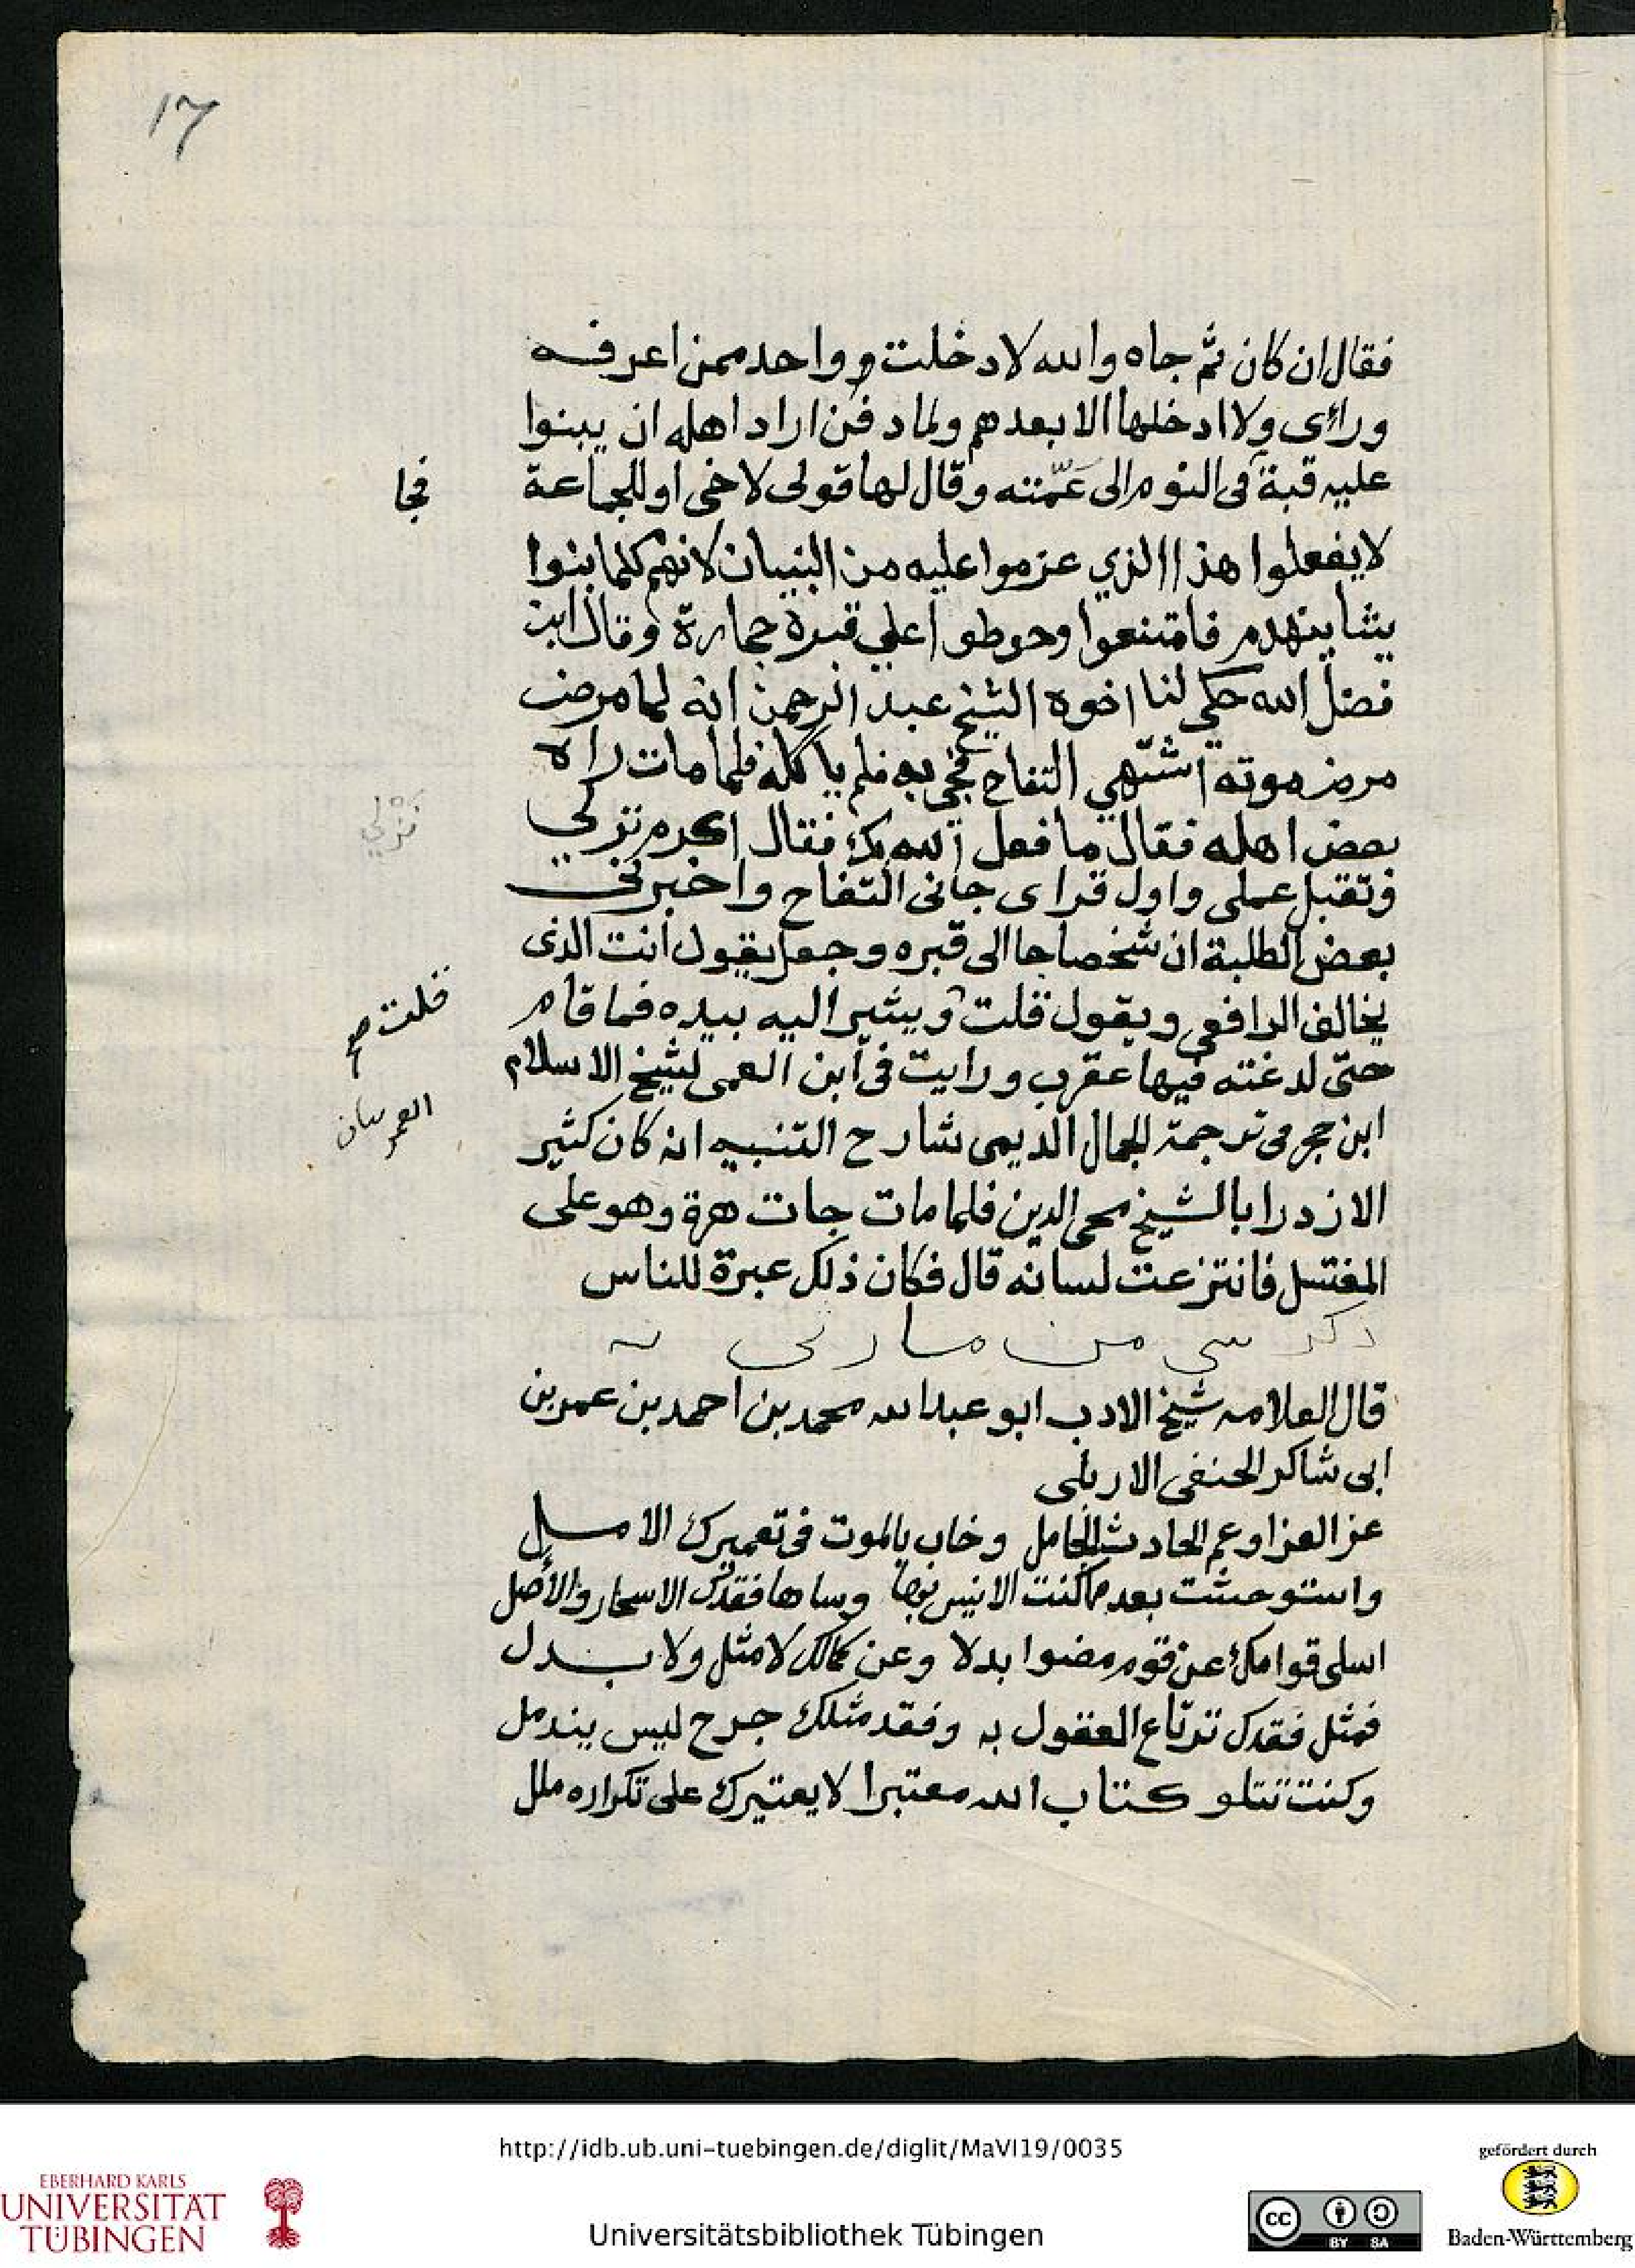 17
فقال ان كان ثم جاه والله لا دخلت و واحد ممن اعرفه
ورائى ولا ادخلها الا بعدهم ولما دفن اراد اهله ان يبنوا
عليه قبة فى النوم الى عمّته وقال لها قولى لاخى او للجماعة
فجا
لا يفعلوا هذا الذي عزموا عليه من البنيان لانهم كلما بنوا
شيا ينهدم فامتنعوا وحوطوا علي قبره حجارة وقال ابن
فضل الله حكي لنا اخوه الشيخ عبد الرحمن انه لما مرض
مرض موته اشتهي التفاح فجي به فلم ياكله فلما مات راه
بعض اهله فقال ما فعل الله بك فقال اكرم نزلي
نزلي
وتقبل عملى واول قراى جانى التفاح واخبرنى
بعض الطلبة ان شخصا جا الى قبره وجعل يقول انت الذى
يخالف الرافعى ويقول قلت ويشير اليه بيده فما قام
قلت صح
حتى لدغته فيها عقرب ورايت فى ابن العمى لشيخ الاسلام
العمر
ابن حجر فى ترجمة الجمال الديمى شارح التنبيه انه كان كثير
الازدرا بالشيخ محى الدين فلما مات جات هرة وهو على
المغتسل فانتزعت لسانه قال فكان ذلك عبرة للناس
ذكر شى من مراثيه
قال العلامه شيخ الادب ابو عبد الله محمد بن احمد بن عمر بن
ابى شاكر الحنفى الاربلى
عز العزا وعم الحادث الجامل وخاب بالموت فى تعميرك الامل
واستوحشت بعد ما كنت الانيس بها وساها فقدك الاسحار والأصل
اسلى قوامك عن قوم مضوا بدلا وعن كمالك لا مثل ولا بدل
فمثل فقدك ترتاع العقول به وفقد مثلك جرح ليس يندمل
وكنت تتلو كتاب الله معتبرا لا يعتيرك على تكراره ملل
http://idb.ub.uni-tuebingen.de/diglit/MaVI19/0035
EBERHARD KARLS
UNIVERSITÄT
TÜBINGEN
Universitätsbibliothek Tübingen
cc BY SA
gefördert durch
Baden-Württemberg